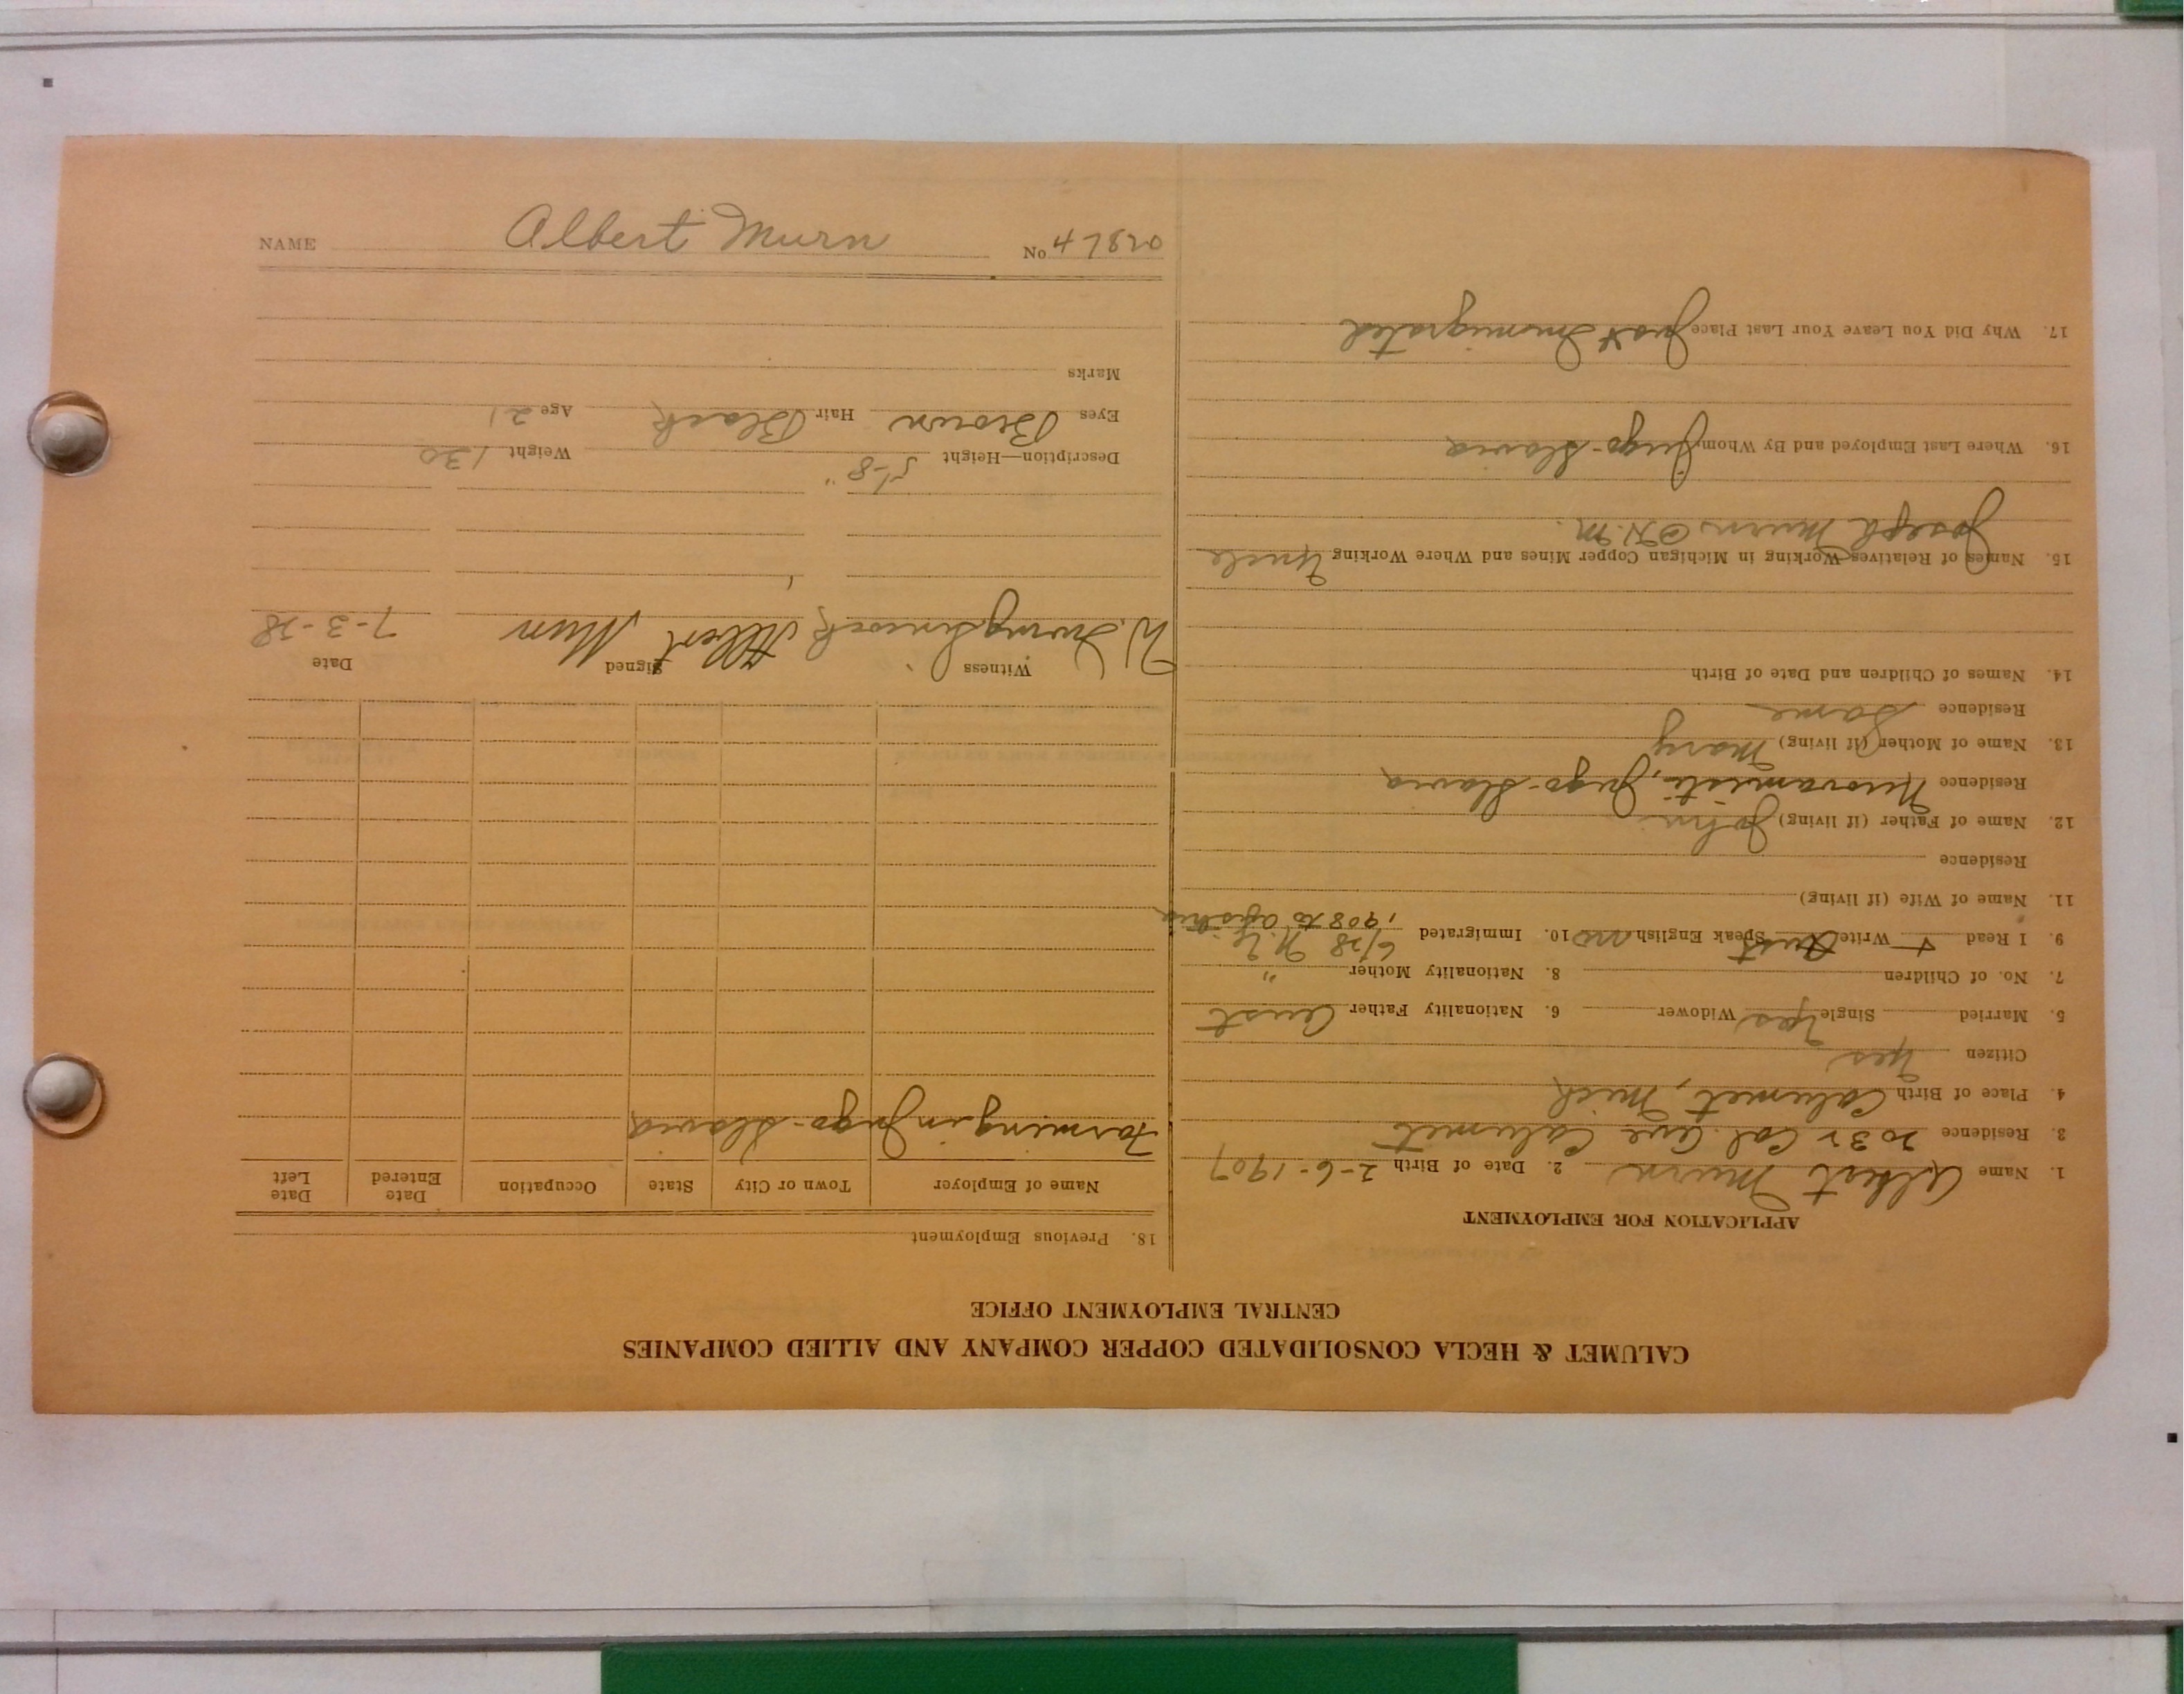 CALUMET & HECLA CONSOLIDATED COPPER COMPANY AND ALLIED COMPANIES
CENTRAL EMPLOYMENT OFFICE
APPLICATION FOR EMPLOYMENT
1. Name Albert Murn 2. Date of Birth 2-6-1907
3. Residence 2032 Cal. Ave Calumet
4. Place of Birth Calumet, Mich
Citizen Yes
5. Married Single Yes Widower 6. Nationality Father Aust
7. No. of Children 8. Nationality Mother "
9. I Read + Write Aust Speak English no 10. Immigrated 6/28 N.Y.
1908 to
11. Name of Wife (if living)
Residence
12. Name of Father (if living) John
Residence Jugo-Slavia
13. Name of Mother (if living) Mary
Residence Same
14. Names of Children and Date of Birth
15. Names of Relatives Working in Michigan Copper Mines and Where Working Uncle
Joseph Murn
16. Where Last Employed and By Whom Jugo-Slavia
17. Why Did You Leave Your Last Place Just Immigrated
18. Previous Employment
Name of Employer Town or City State Occupation Date Entered Date Left
Farming in Jugo-Slavia
Witness Signed Date
W. Albert Murn 7-3-28
Description—Height 5'-8" Weight 130
Eyes Brown Hair Black Age 21
Marks
NAME Albert Murn No. 47820